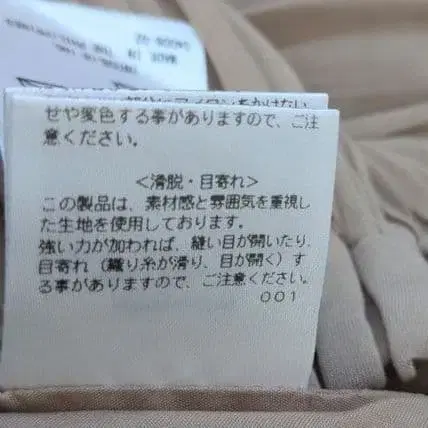 MADE IN THE PHILIPPINES
せや変色する事がありますので、ご注
意ください。
<滑脱・目寄れ>
この製品は、素材感と雰囲気を重視し
た生地を使用しております。
強い力が加われば、縫い目が開いたり、
目寄れ(織り糸が滑り、目が開く)す
る事がありますので、ご注意ください。
001